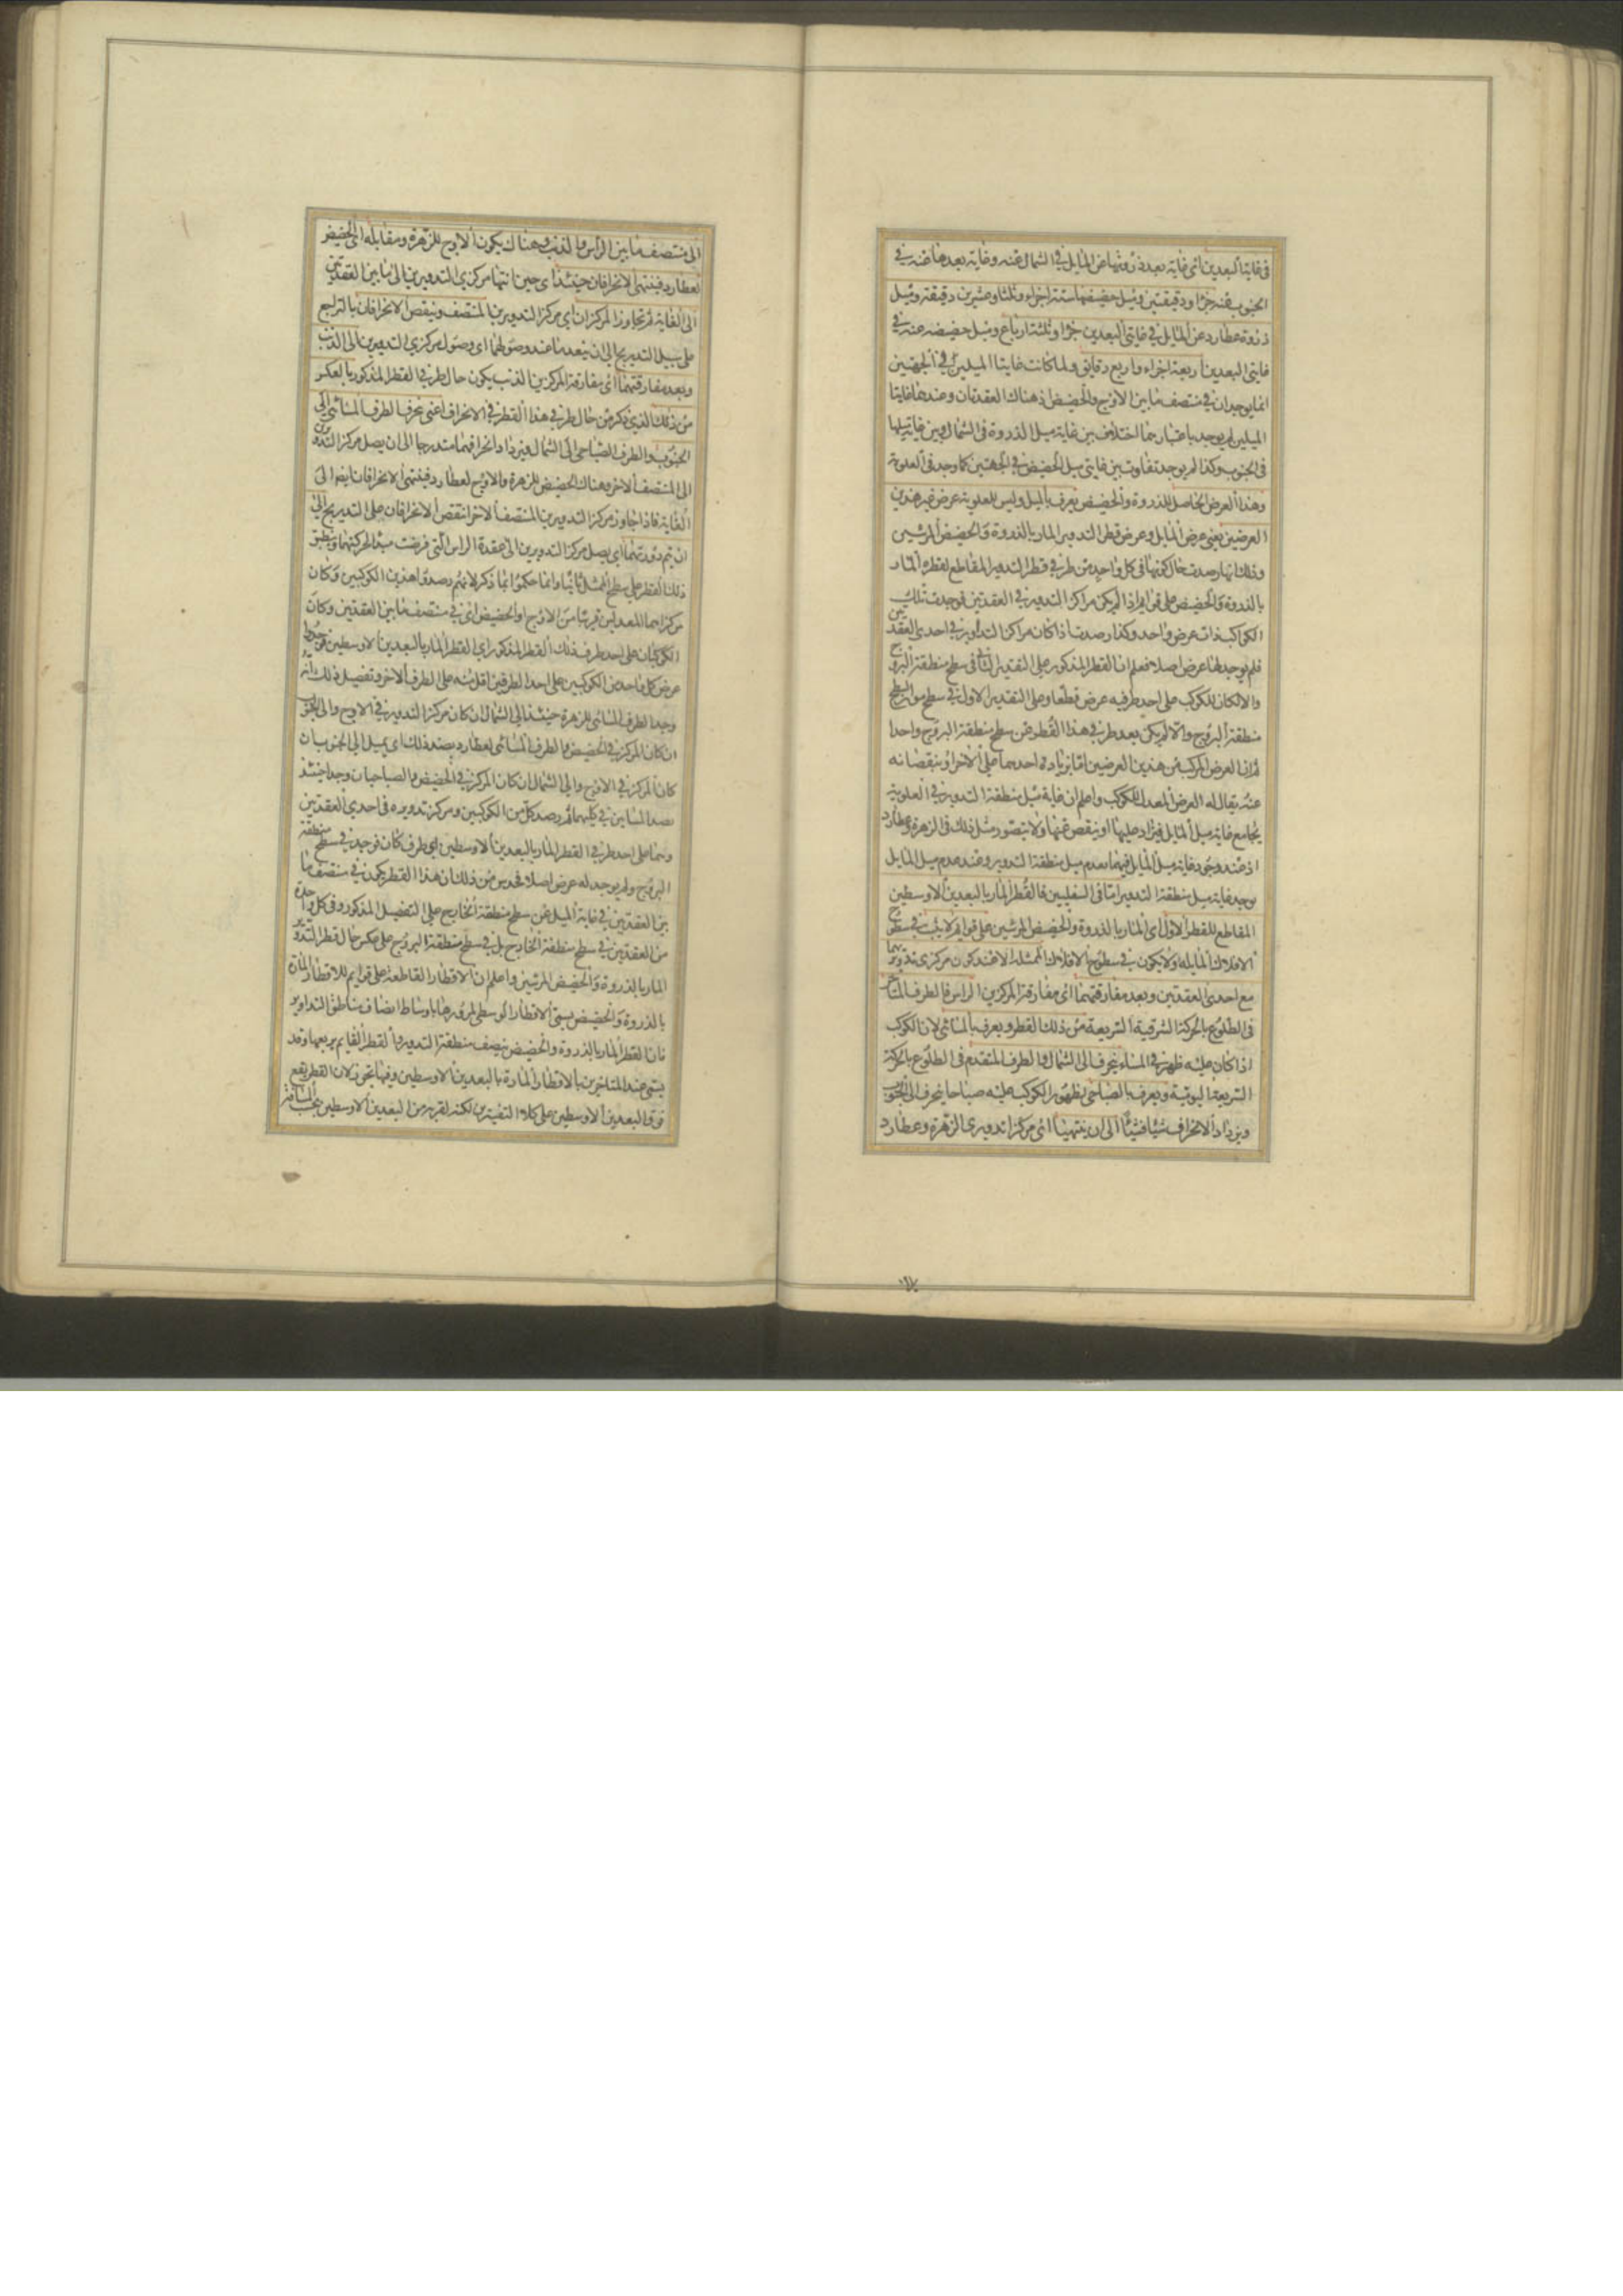 في غايتا البعدين اي غاية بعد ذروتها عن المايل في الشمال عنه وغاية بعدها عنه في
الجنوب عنه جزا ودقيقتين وميل حضيضها ستة اجزاء وثلثا وعشرين دقيقة وميل
ذروة عطارد عن المايل في غايتي البعدين جزا وثلثة ارباع وميل حضيضه عنه في
غايتي البعدين اربعة اجزاء واربع دقايق ولما كانت غايتا الميلين في الجهتين
انما يوجدان في منتصف ما بين الاوج والحضيض اذ هناك العقدتان وعندهما غايتا
الميلين لم يوجد باعتبارهما اختلاف بين غاية ميل الذروة في الشمال وبين غاية ميلها
في الجنوب وكذا لم يوجد تفاوت بين غايتي ميل الحضيض في الجهتين كما وجد في العلوية
وهذا العرض الحاصل للذروة والحضيض يعرف بالميل وليس للعلوية عرض غير هذين
العرضين يعني عرض المايل وعرض قطر التدوير المار بالذروة والحضيض المرئيين
وذلك انها رصدت حال كونها في كل واحد من طرفي قطر التدوير المقاطع لقطره المار
بالذروة والحضيض على قوايم اذا لم يكن مراكز التدوير في العقدتين فوجدت تلك
الكواكب ذات عرض واحد وكذا رصدت اذا كان مراكز التداوير في احدى العقدتين
فلم يوجد لها عرض اصلا فعلم ان القطر المذكور على التقدير الثاني في سطح منطقة البروج
والا لكان للكوكب على احد طرفيه عرض قطعا وعلى التقدير الاول في سطح مواز لسطح
منطقة البروج والا لم يكن بعد طرفي هذا القطر عن سطح منطقة البروج واحدا
ثم ان العرض المركب من هذين العرضين اما بزيادة احدهما على الاخر او بنقصانه
عنه يقال له العرض المعدل للكوكب واعلم ان غاية ميل منطقة التدوير في العلوية
يجامع غاية ميل المايل فيزاد عليها او ينقص عنها ولا يتصور مثل ذلك في الزهرة وعطارد
اذ عند وجود غاية ميل المايل فيهما يعدم ميل منطقة التدوير وعند عدم ميل المايل
يوجد غاية ميل منطقة التدوير اما في السفليين فالقطر المار بالبعدين الاوسطين
المقاطع للقطر الاول اي المار بالذروة والحضيض المرئيين على قوايم لا يثبت في سطوح
الافلاك المايلة ولا يكون في سطوح الافلاك الممثلة الا عند كون مركزي تدويريهما
مع احدى العقدتين وبعد مفارقتهما اي مفارقة المركزين الراس فالطرف المتاخر
في الطلوع بالحركة الشرقية السريعة من ذلك القطر ويعرف بالمسائي لان الكوكب
اذا كان عليه ظهر في المساء ينحرف الى الشمال والطرف المتقدم في الطلوع بالحركة
السريعة اليومية ويعرف بالصباحي لظهور الكوكب عليه صباحا ينحرف الى الجنوب
ويزداد الانحراف شيئا فشيئا الى ان ينتهيا اي مركزا تدويري الزهرة وعطارد
الى منتصف ما بين الراس والذنب وهناك يكون الاوج للزهرة ومقابله اي الحضيض
لعطارد فينتهي الانحرافان حينئذ اي حين انتهاء مركزي التدويرين الى ما بين العقدتين
الى الغاية ثم تجاوز المركزان اي مركزا التدويرين المنتصف وينقص الانحرافان بالتراجع
على سبيل التدريج الى ان ينعدما عند وصولهما اي وصول مركزي التدويرين الى الذنب
وبعد مفارقتهما اي مفارقة المركزين الذنب يكون حال طرفي القطر المذكور بالعكس
من ذلك الذي ذكر من حال طرفي هذا القطر في الانحراف اعني ينحرف الطرف المسائي الى
الجنوب والطرف الصباحي الى الشمال ويزداد انحرافهما متدرجا الى ان يصل مركز التدويرين
الى المنتصف الاخر وهناك الحضيض للزهرة والاوج لعطارد فينتهي الانحرافان ايضا الى
الغاية فاذا جاوز مركز التدويرين المنتصف الاخر انتقص الانحرافان على التدريج الى
ان يتم دورتهما اي يصل مركز التدويرين الى عقدة الراس التي فرضت مبدا لحركتهما وينطبق
ذلك القطر على سطح الممثل ثانيا وانما حكموا بما ذكر لانهم رصدوا هذين الكوكبين وكان
مركزاهما المعدلين قريبا من الاوج او الحضيض اي في منتصف ما بين العقدتين وكان
الكوكبان على احد طرف ذلك القطر المذكور اي القطر المار بالبعدين الاوسطين فوجدوا
عرض كل واحد من الكوكبين على احد الطرفين اقل منه على الطرف الاخر وتفصيل ذلك انه
وجد الطرف المسائي للزهرة حينئذ الى الشمال ان كان مركز التدوير في الاوج والى الجنوب
ان كان المركز في الحضيض والطرف المسائي لعطارد بضد ذلك اي يميل الى الجنوب ان
كان المركز في الاوج والى الشمال ان كان المركز في الحضيض والصباحيان وجدا حينئذ
بضد المسائين في كليهما ثم رصد كل من الكوكبين ومركز تدويره في احدى العقدتين
وهما على احد طرفي القطر المار بالبعدين الاوسطين اي طرف كان فوجد في سطح منطقة
البروج ولم يوجد له عرض اصلا فحدس من ذلك ان هذا القطر يكون في منتصف ما
بين العقدتين في غاية الميل عن سطح منطقة الخارج على التفصيل المذكور وفي كل واحدة
من العقدتين في سطح منطقة الخارج بل في سطح منطقة البروج على عكس حال قطر التدوير
المار بالذروة والحضيض المرئيين واعلم ان الاقطار القاطعة على قوايم للاقطار المارة
بالذروة والحضيض يسمى الاقطار الوسطى لمرورها باوساط انصاف مناطق التداوير
فان القطر المار بالذروة والحضيض ينصف منطقة التدوير والقطر القايم يربعها وقد
يسمى عند المتاخرين بالاقطار المارة بالبعدين الاوسطين وفيها تجوز لان القطر يقع
فوق البعدين الاوسطين على كلا التفسيرين لكنه لقربه من البعدين الاوسطين بحسب المسافة